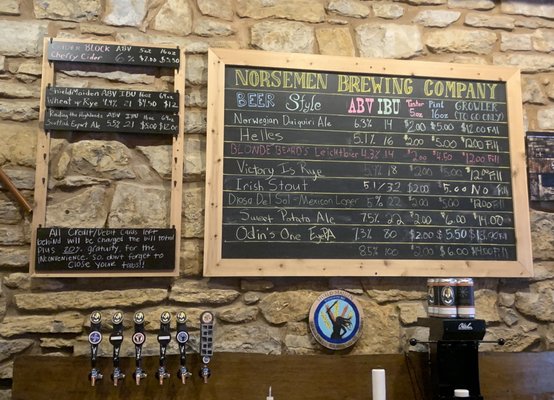 Cherry Cider 6%
ABV 5oz 16oz
Shield Maiden ABV IBU 5oz 16oz
Wheat & Rye 4.9% 21 $4.50 $12
Raiding the Highlands ABV IBU 5oz 16oz
Scottish Export Ale 5.5% 21 $5.00
All Credit/Debit Cards left
behind will be charged the bill total
Plus 20% gratuity, for the
inconvenience. So, don't forget to
Close your tabs!!
NORSEMEN BREWING COMPANY
BEER Style ABV IBU Taster 5oz Pint 16oz GROWLER (TO GO ONLY)
Norwegian Daiquiri Ale 6.3% 14 $2.00 $5.00 $12.00 Fill
Helles 5.1% 16 $2.00 $5.00 $12.00 Fill
BLONDE BEARD'S Leichtbier 4.3% 14 $2.00 $4.50 $12.00 Fill
Victory Is Rye
Irish Stout 5.1 32 $2.00 $5.00 No Fill
Diosa Del Sol - Mexican Lager
Sweet Potato Ale 7.5% 22 $2.00 $5.00 $14.00
Odin's One Eye PA 7.3% 80 $2.00 $5.50
8.5% 100 $2.00 $6.00